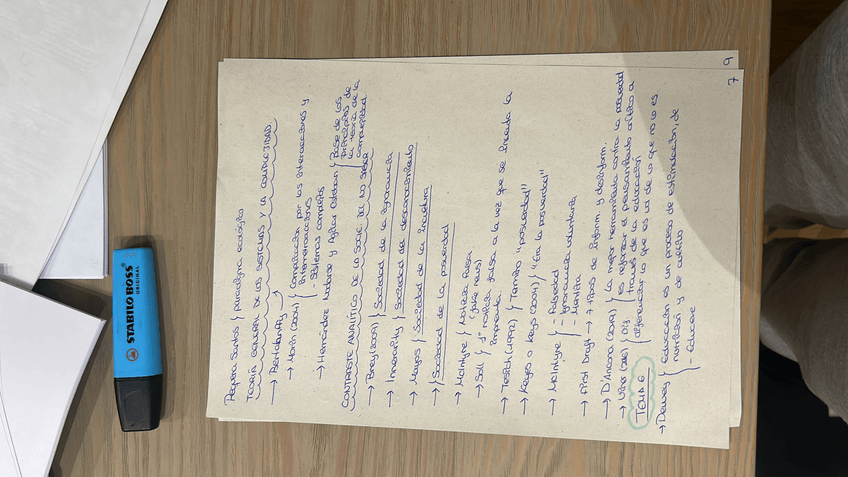 Requena Santos { paradigma ecológico
TEORÍA GENERAL DE LOS SISTEMAS Y LA COMPLEJIDAD
→ Bertalanffy →
→ Morin (2004) { Complicación por las interacciones y
interretroacciones
- Sistemas complejos
→ Hernández y Aguilar { Base de los
principios de
la teoría de la
complejidad
CONTRASTE ANALÍTICO DE LA SOCIE. DEL NO SABER
→ Brey (2009) { Sociedad de la ignorancia
→ Innerarity { Sociedad del desconocimiento
→ Mayos { Sociedad de la incultura
→ { Sociedad de la posverdad
→ McIntyre { Noticia falsa
(fake news)
→ Soll { 1ª noticia falsa a la vez que se inventa la
imprenta.
→ Tesich (1992) { Término "posverdad"
→ Keyes o Keys (2004) { "Era la posverdad"
→ McIntyre { - Falsedad
- Ignorancia voluntaria
- Mentira
→ First Draft → 7 tipos de inform. y desinform.
→ D'Ancona (2019) { La mejor herramienta contra la posverdad
es reforzar el pensamiento crítico a
través de la educación
diferenciar lo que es real de lo que no lo es
TEMA 6
→ Dewey { educación es un proceso de estimulación, de
nutrición y de cultivo
- Educere
7
9
STABILO BOSS
ORIGINAL